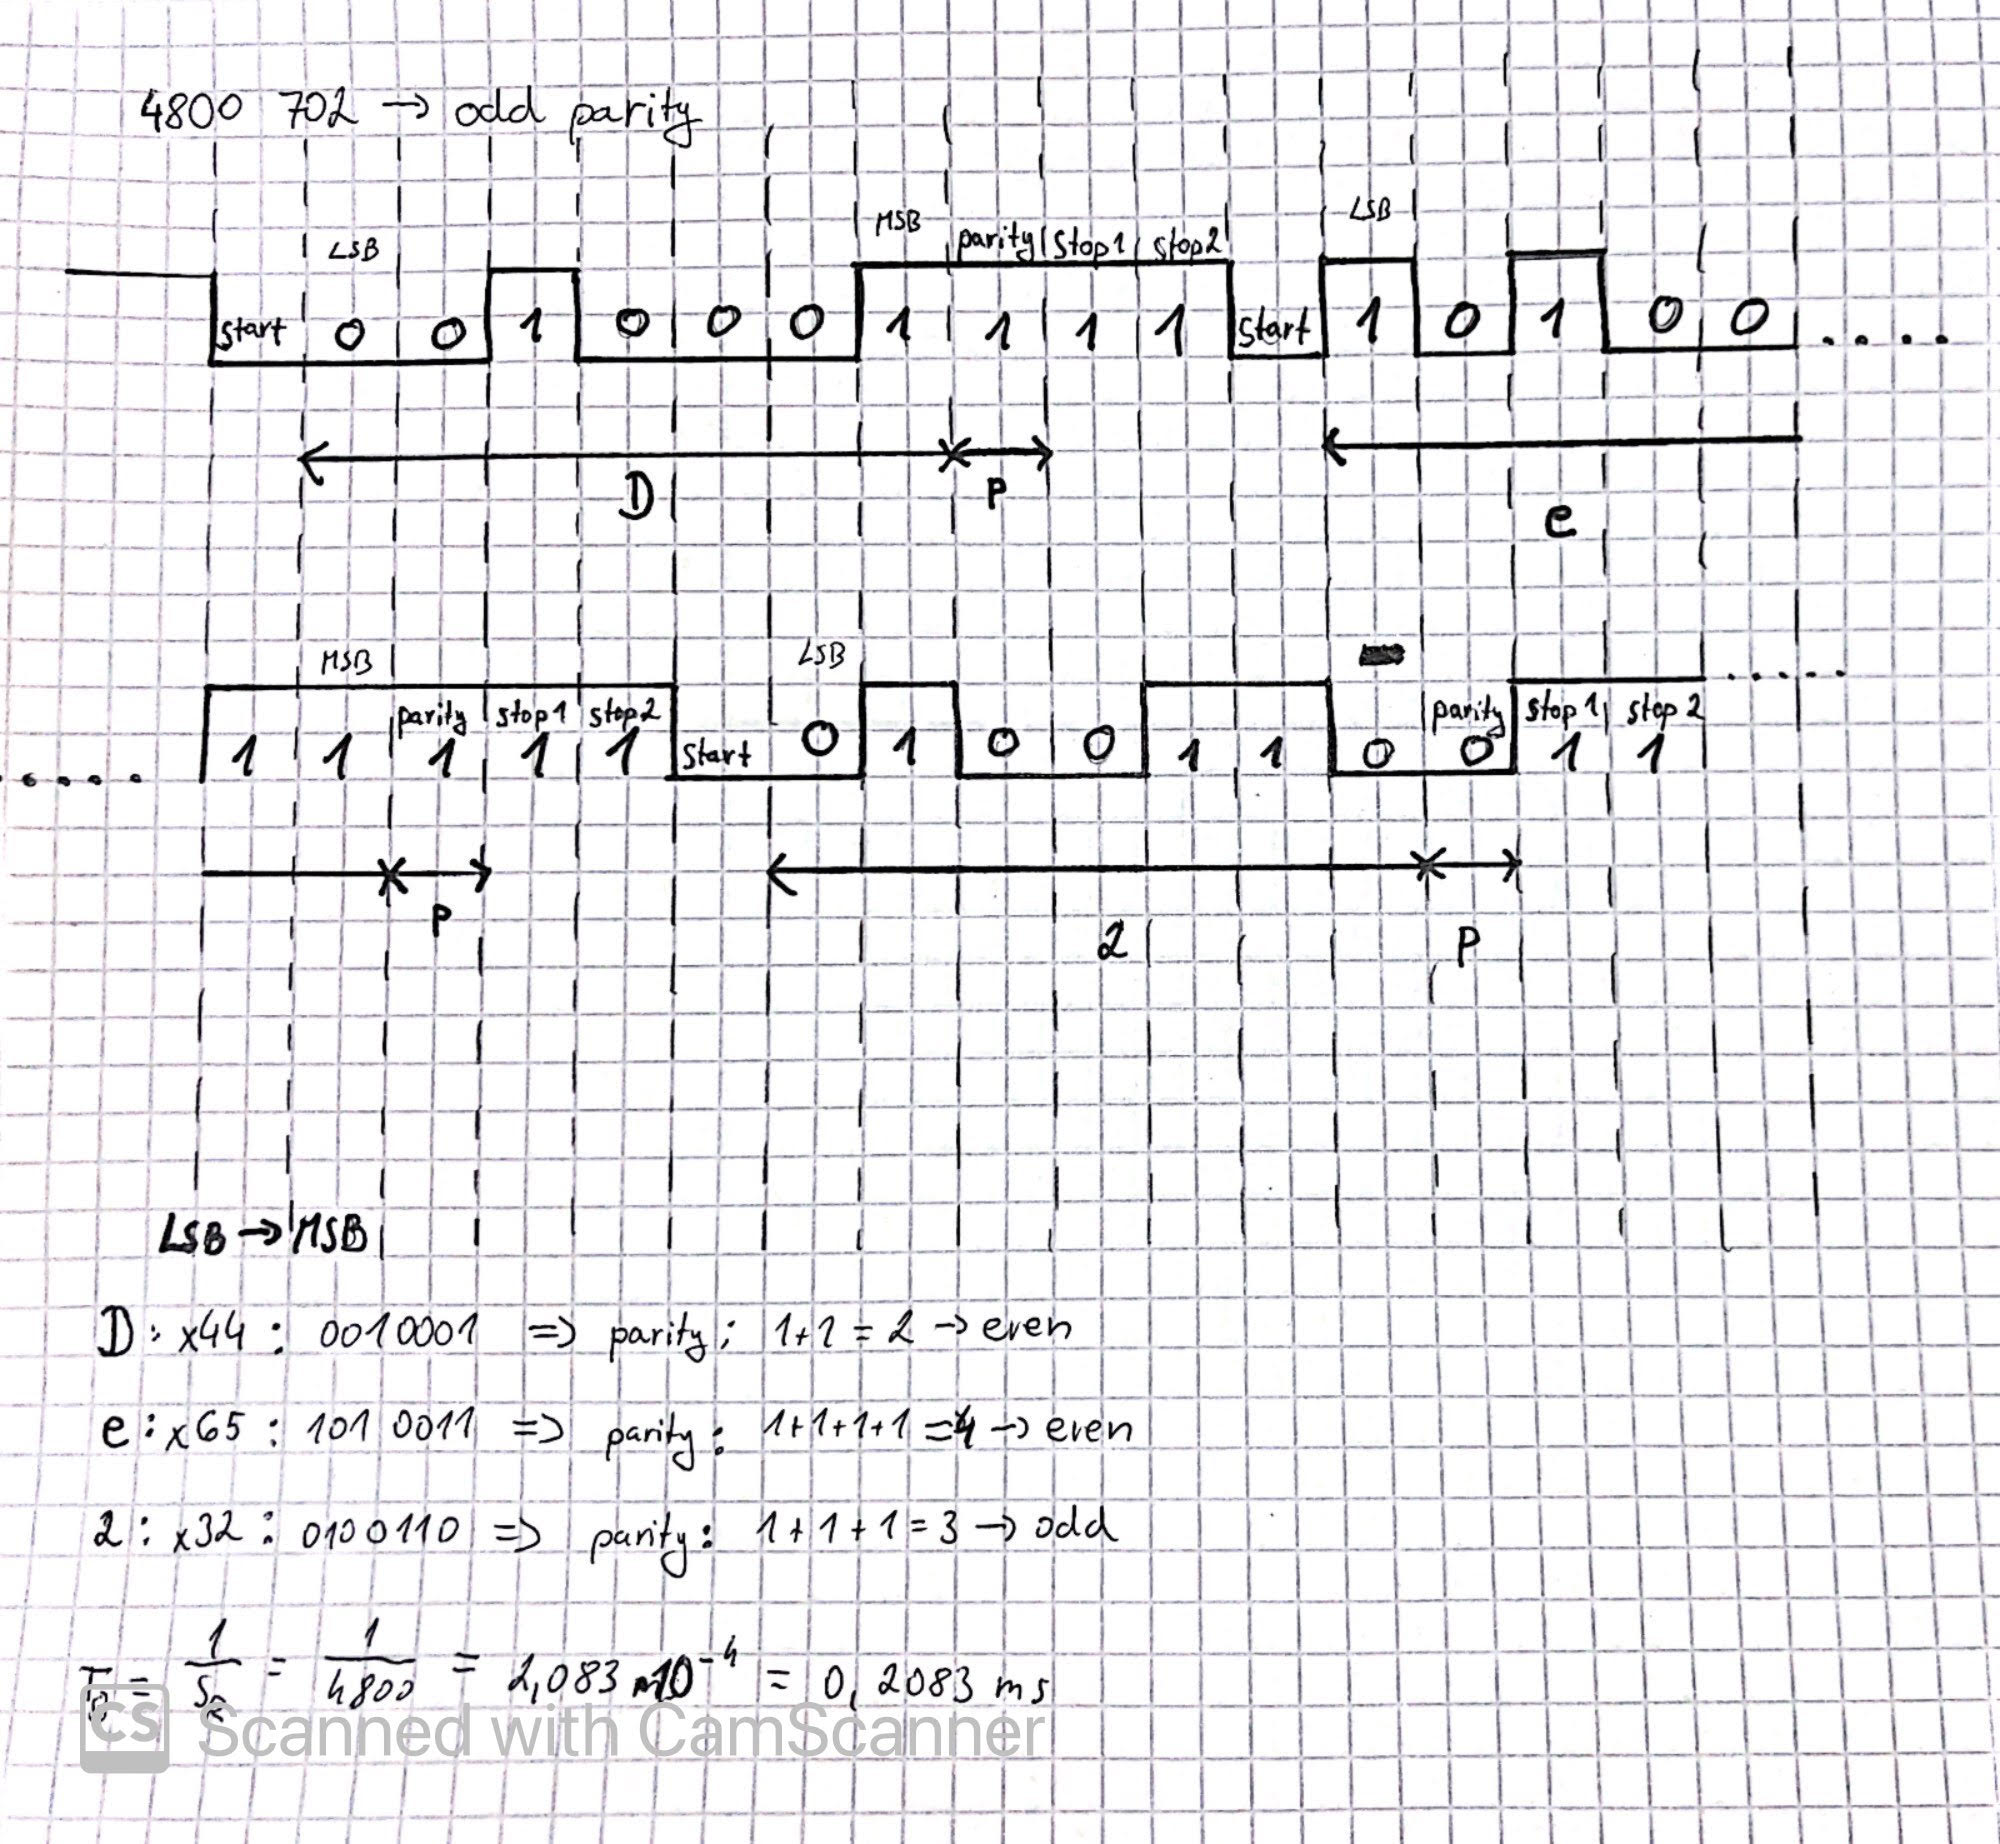 4800 702 → odd parity
LSB MSB parity stop1 stop2 LSB
start 0 0 1 0 0 0 1 1 1 1 start 1 0 1 0 0 .....
D P e
MSB LSB
parity stop1 stop2 parity stop1 stop2 .....
..... 1 1 1 1 1 start 0 1 0 0 1 1 0 0 1 1
P 2 P
LSB → MSB
D: x44: 0010001 => parity: 1+1 = 2 → even
e: x65: 101 0011 => parity: 1+1+1+1 = 4 → even
2: x32: 0100110 => parity: 1+1+1 = 3 → odd
= 1/ = 1/4800 = 2,083 10⁻⁴ = 0,2083 ms
CS Scanned with CamScanner